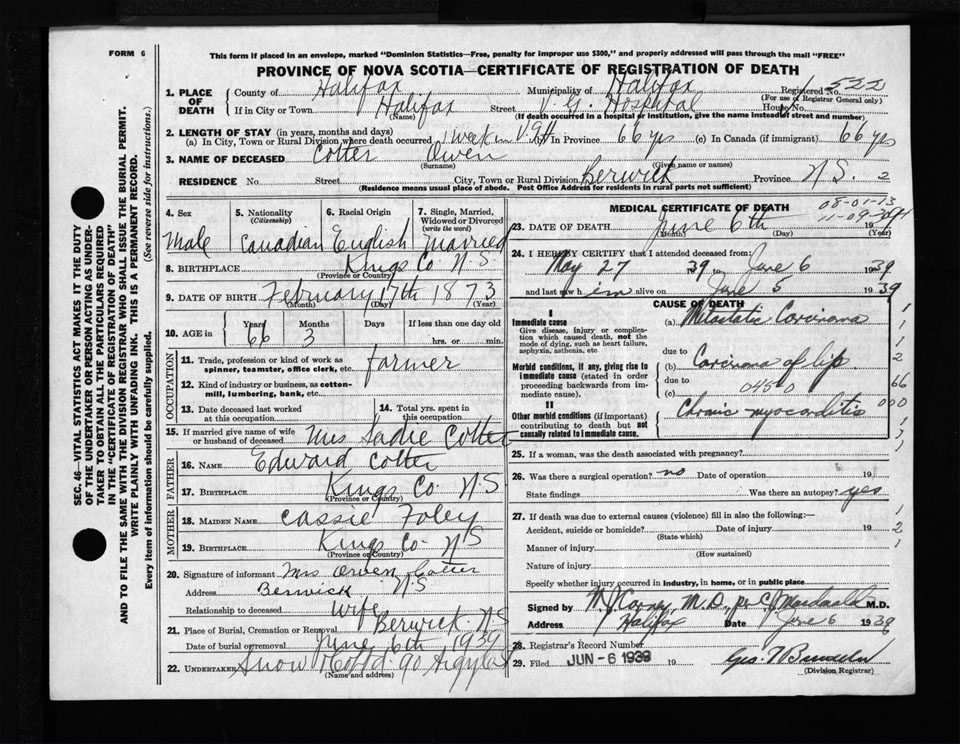 FORM 6
This form if placed in an envelope, marked "Dominion Statistics—Free, penalty for improper use $300," and properly addressed will pass through the mail "FREE"
PROVINCE OF NOVA SCOTIA—CERTIFICATE OF REGISTRATION OF DEATH
1. PLACE OF DEATH
County of Halifax Municipality of Halifax Registered No. 522
(For use of Registrar General only)
If in City or Town Halifax Street V. G. Hospital House No.
(Name) (If death occurred in a hospital or institution, give the name instead of street and number)
2. LENGTH OF STAY (in years, months and days)
(a) In City, Town or Rural Division where death occurred 1 week in V.G.H. In Province 66 yrs (c) In Canada (if immigrant) 66 yrs
3. NAME OF DECEASED Cotter Owen
(Surname) (Given name or names)
RESIDENCE No. Street City, Town or Rural Division Berwick Province N.S. 2
(Residence means usual place of abode. Post Office Address for residents in rural parts not sufficient)
4. Sex Male
5. Nationality (Citizenship) Canadian
6. Racial Origin English
7. Single, Married, Widowed or Divorced (write the word) Married
8. BIRTHPLACE Kings Co. N.S.
(Province or Country)
9. DATE OF BIRTH February 17th 1873
(Month) (Day) (Year)
10. AGE in Years 66 Months 3 Days If less than one day old hrs. or min.
OCCUPATION
11. Trade, profession or kind of work as spinner, teamster, office clerk, etc. farmer
12. Kind of industry or business, as cotton-mill, lumbering, bank, etc.
13. Date deceased last worked at this occupation
14. Total yrs. spent in this occupation
15. If married give name of wife or husband of deceased Mrs Sadie Cotter
FATHER
16. NAME Edward Cotter
17. BIRTHPLACE Kings Co. N.S
(Province or Country)
MOTHER
18. MAIDEN NAME Cassie Foley
19. BIRTHPLACE Kings Co. N S
(Province or Country)
20. Signature of informant Mrs Owen Cotter
Address Berwick N S
Relationship to deceased Wife
21. Place of Burial, Cremation or Removal Berwick N S
Date of burial or removal June 6th 1939
22. UNDERTAKER Snow & Co Ltd. 90 Argyle St
(Name and address)
MEDICAL CERTIFICATE OF DEATH
08-01-13
23. DATE OF DEATH June 6th 19
(Month) (Day) (Year)
24. I HEREBY CERTIFY that I attended deceased from:
May 27 1939 to June 6 1939
and last saw him alive on June 5 1939
CAUSE OF DEATH
I
Immediate cause
Give disease, injury or complication which caused death, not the mode of dying, such as heart failure, asphyxia, asthenia, etc.
(a) Metastatic Carcinoma
due to
Morbid conditions, if any, giving rise to immediate cause (stated in order proceeding backwards from immediate cause).
(b) Carcinoma of lip
due to
(c) 045 0
II
Other morbid conditions (if important) contributing to death but not causally related to immediate cause.
Chronic myocarditis
25. If a woman, was the death associated with pregnancy?
26. Was there a surgical operation? no Date of operation 19
State findings Was there an autopsy? yes
27. If death was due to external causes (violence) fill in also the following:—
Accident, suicide or homicide? Date of injury 19
(State which)
Manner of injury
(How sustained)
Nature of injury
Specify whether injury occurred in industry, in home, or in public place
Signed by M.D. M.D.
Address Halifax Date June 6 1939
28. Registrar's Record Number
29. Filed JUN - 6 1939 19
(Division Registrar)
SEC. 46—VITAL STATISTICS ACT MAKES IT THE DUTY
OF THE UNDERTAKER OR PERSON ACTING AS UNDER-
TAKER TO OBTAIN ALL THE PARTICULARS REQUIRED
IN THE "CERTIFICATE OF REGISTRATION OF DEATH"
AND TO FILE THE SAME WITH THE DIVISION REGISTRAR WHO SHALL ISSUE THE BURIAL PERMIT.
WRITE PLAINLY WITH UNFADING INK. THIS IS A PERMANENT RECORD.
Every item of information should be carefully supplied. (See reverse side for instructions.)